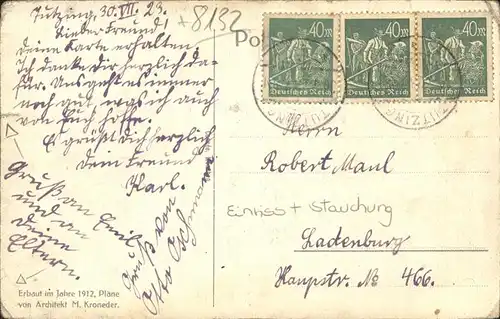 Tutzing, 30.VII.23.
Lieber Freund!
Deine Karte erhalten.
Ich danke Dir herzlich da-
für. Uns geht es immer
noch gut, was ich auch
von Euch hoffe.
Es grüßt Dich herzlich
dein Freund
Karl.
Gruß an Emil
und an
deine
Eltern.
Gruß von
Otto
*8132
Po
40 M 40 M 40 M
Deutsches Reich Deutsches Reich Deutsches Reich
TUTZING TUTZING
Herrn
Robert Maul
Einriss + Stauchung
Ladenburg
Haupstr. No 466.
Erbaut im Jahre 1912, Pläne
von Architekt M. Kroneder.